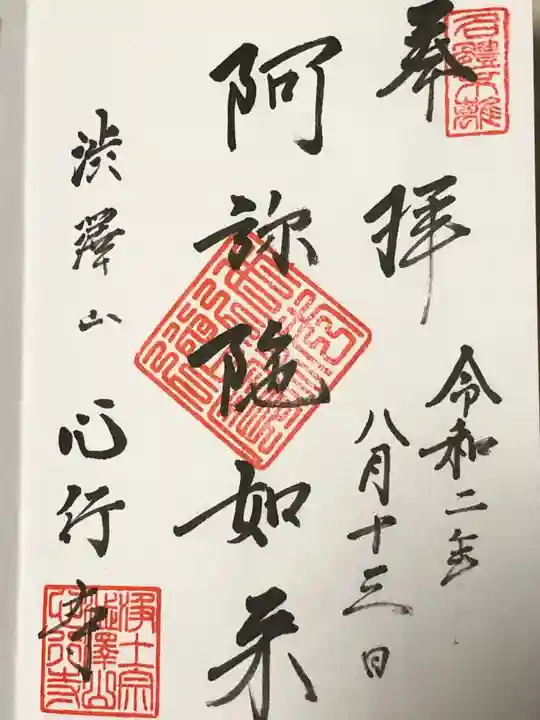 奉拝
令和二年
八月十三日
阿弥陀如来
渋澤山 心行寺
浄土宗
渋澤山
心行寺